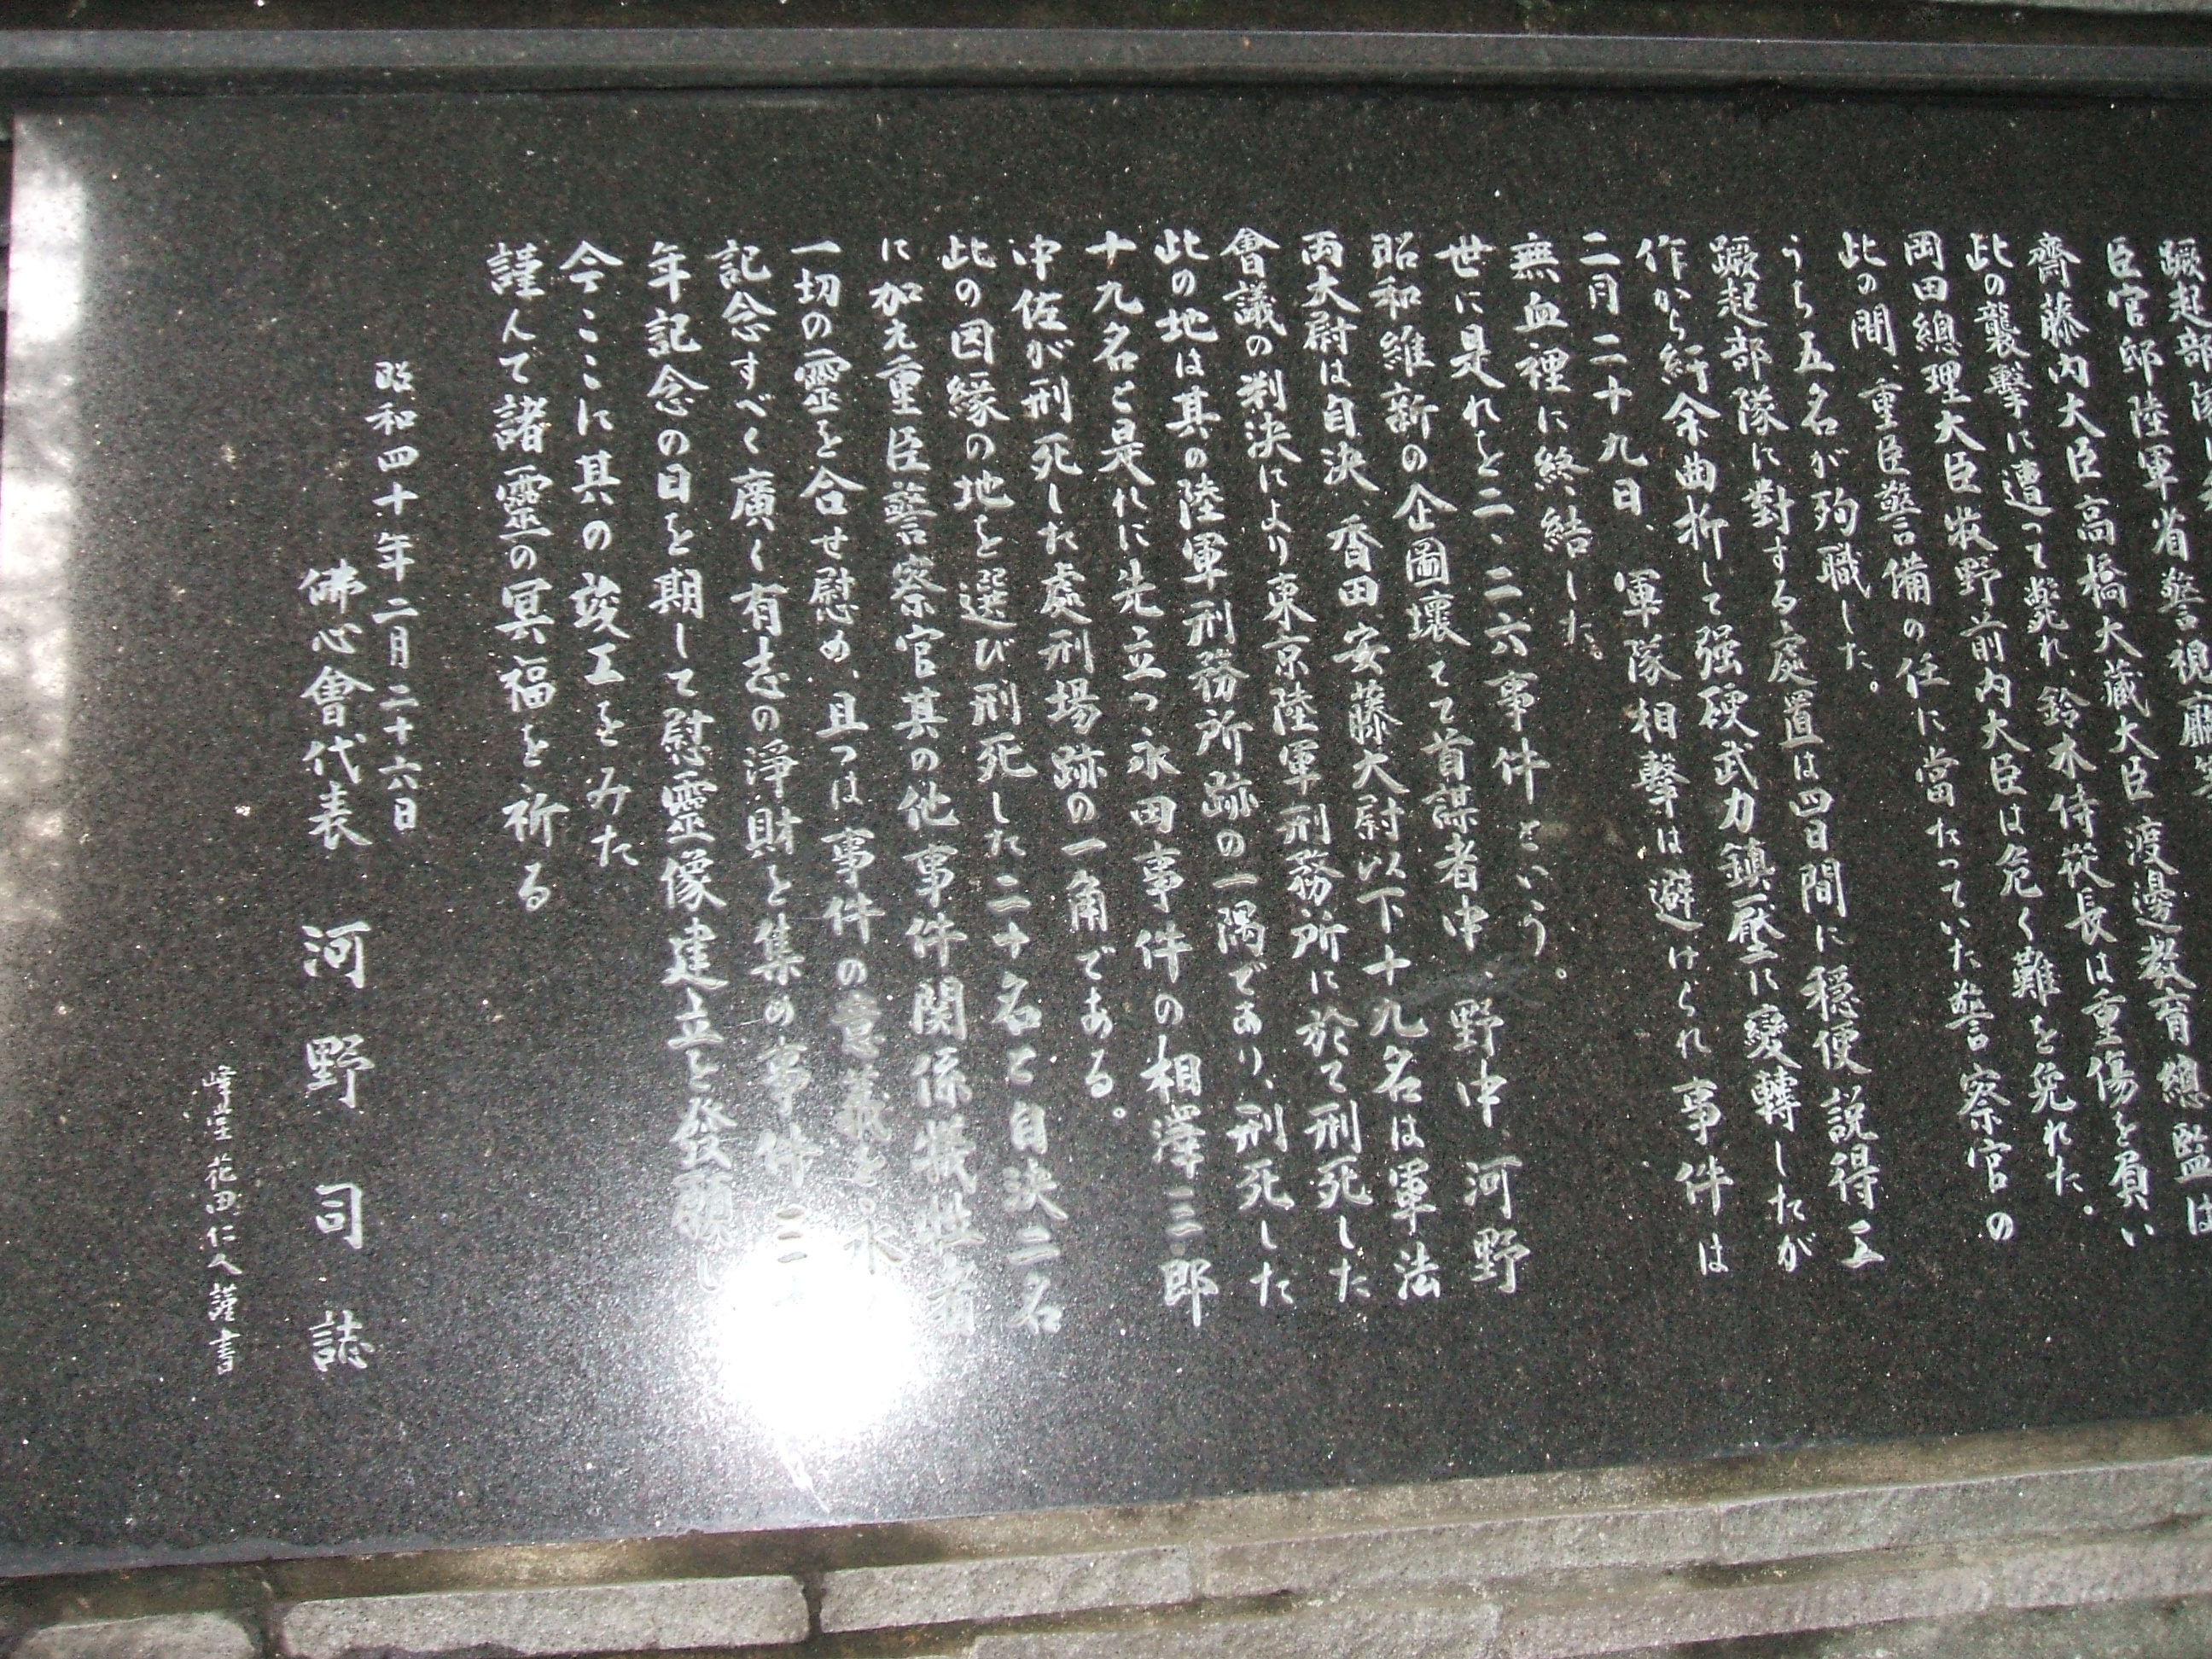 蹶起部隊は
臣官邸陸軍省警視廳等
齋藤内大臣高橋大蔵大臣渡邊教育總監は
此の襲撃に遭って斃れ、鈴木侍従長は重傷を負い
岡田總理大臣牧野前内大臣は危く難を免れた。
此の間、重臣警備の任に當たっていた警察官の
うち五名が殉職した。
蹶起部隊に對する處置は四日間に穏便説得工
作から紆余曲折して强硬武力鎮壓に變轉したが
二月二十九日、軍隊相撃は避けられ事件は
無血裡に終結した。
世に是れを二、二六事件という。
昭和維新の企圖壞えて首謀者中、野中、河野
両大尉は自決、香田、安藤大尉以下十九名は軍法
會議の判決により東京陸軍刑務所に於て刑死した
此の地は其の陸軍刑務所跡の一隅であり、刑死した
十九名と是れに先立つ永田事件の相澤三郎
中佐が刑死した處刑場跡の一角である。
此の因緣の地を選び刑死した二十名と自決二名
に加え重臣警察官其の他事件関係犠牲者
一切の靈を合せ慰め、且つは事件の意義を永く
記念すべく廣く有志の淨財を集め事件三十
年記念の日を期して慰靈像建立を發願し
今ここに其の竣工をみた
謹んで諸靈の冥福を祈る
昭和四十年二月二十六日
佛心會代表 河野司 誌
花田仁久謹書